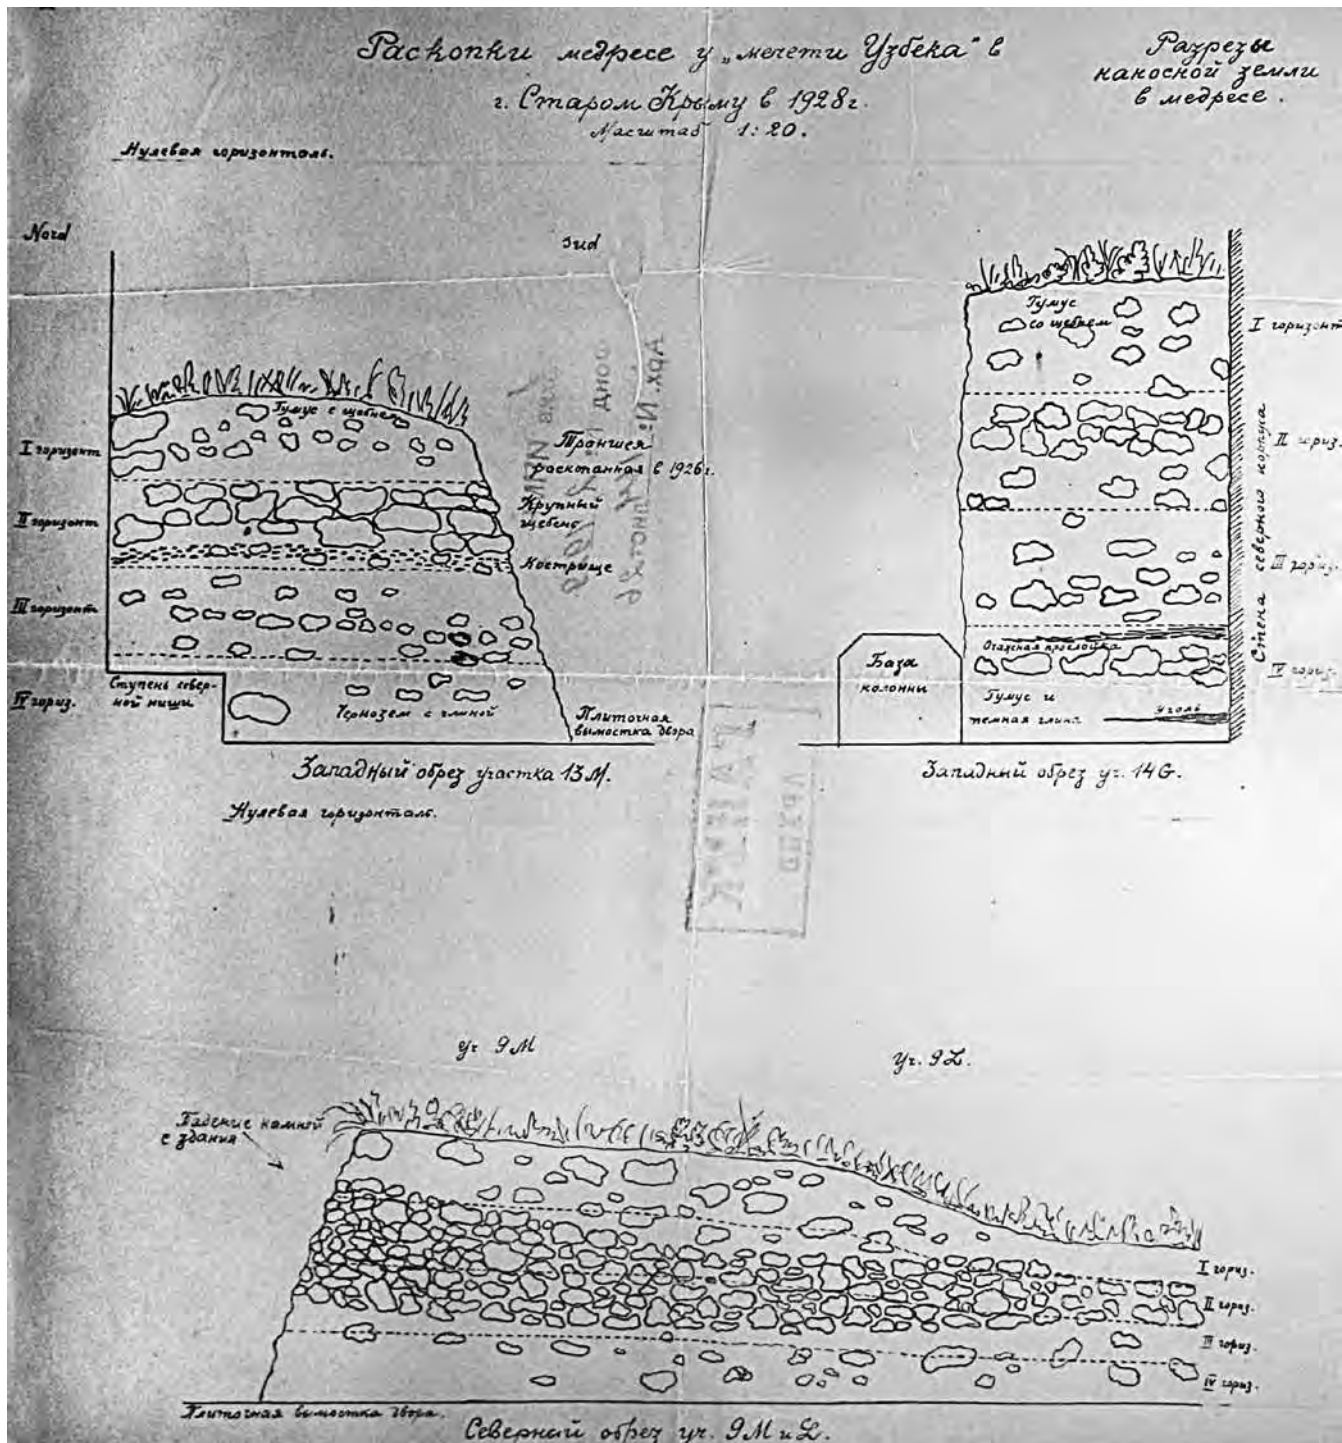 Раскопки медресе у „мечети Узбека“ в
г. Старом Крыму в 1928г.
Масштаб 1:20.
Разрезы
наносной земли
в медресе.
Нулевая горизонталь.
Nord
Sud
Гумус с щебнем
I горизонт
II горизонт
III горизонт
IV гориз.
Траншея
раскопанная в 1926г.
Крупный
щебень
Кострище
Ступень север-
ной ниши
Чернозем с глиной
Плиточная
вымостка двора
Западный обрез участка 13М.
Гумус
со щебнем
I горизонт
II гориз.
III гориз.
IV гориз.
Стена северного корпуса
База
колонны
Очажная прослойка
Гумус и
темная глина
Уголь
Западный обрез уч. 14G.
Нулевая горизонталь.
уч 9М
Уч. 9L.
Падение камней
с здания
I гориз.
II гориз.
III гориз.
IV гориз.
Плиточная вымостка двора.
Северный обрез уч. 9М и L.